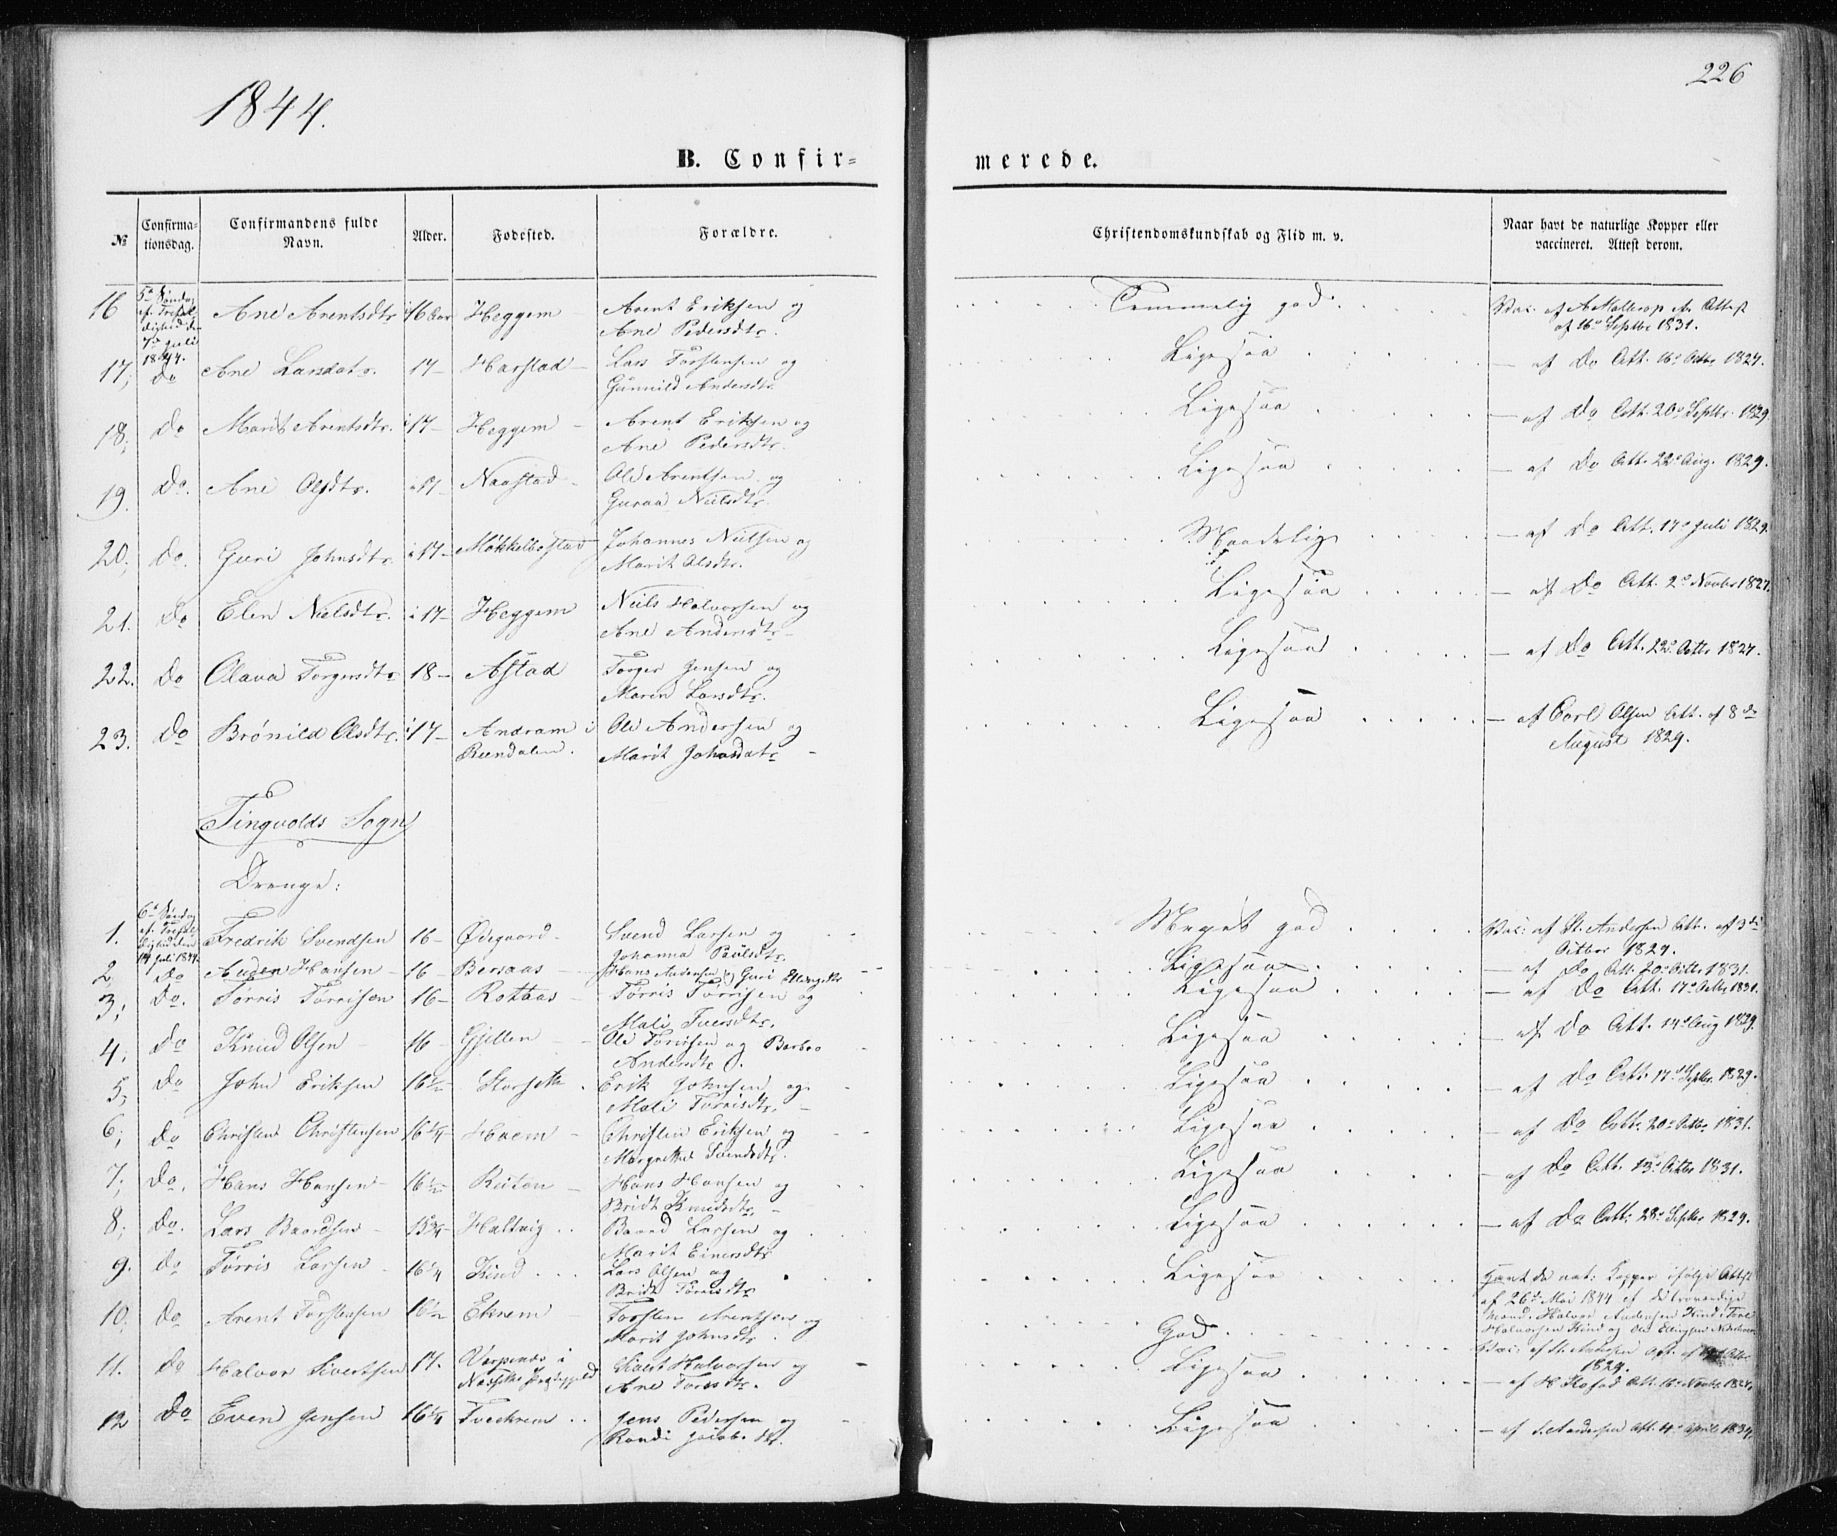 1844.
226
B. Confir=
merede.
№ Confirma-tionsdag. Confirmandens fulde Navn. Alder. Fødested. Forældre. Christendomskundskab og Flid m. v. Naar havt de naturlige Kopper eller vaccineret. Attest derom.
16 5te Søndag ef. Trefoldighed den 7de Juli 1844. Ane Arentsdtr 16 Aar Heggem Arent Eriksen og Ane Pedersdtr. Temmelig god Att af 16de Septbr 1831.
17, Do Ane Larsdatr. 17 – Harstad – Lars Torstensen og Gunnild Andersdtr. Ligesaa – af Do Att. 16de Octbr 1827.
18, Do Marit Arentsdtr. 17 – Heggem – Arent Eriksen og Ane Pedersdtr. Ligesaa – af Do Att. 20de Septbr. 1829
19. Do. Ane Olsdtr. 17 – Naastad – Ole Arentsen og Guraa Nielsdtr. Ligesaa – af Do Att. 22de Aug. 1829.
20, Do. Guri Johnsdtr 17 – Mökkelbostad Johannes Nielsen og Marit Olsdtr. Maadelig – af Do Att. 17de Juli 1829.
21. Do Elen Nielsdtr. 17 – Heggem Niels Halvorsen og Ane Andersdtr – Ligesaa – af Do Att. 2de Novbr 1827.
22. Do Olava Torgersdtr 18 – Astad Torger Jensen og Maren Larsdtr. Ligesaa – af Do Att. 22de Octbr 1827.
23. Do Brönild Olsdtr. 17 – Andram i Ole Andersen og Marit Johnsdatr – Ligesaa – af Carl Olsen Att. af 8de August 1829.
Tingvolds Sogn
Drenge:
1. 6te Søndag ef. Trefoldigheden 14 Juli 1844. Fredrik Svendsen 16 – Ødegaard Svend Larsen og Johanna Paulsdtr. Meget god Vac: af St. Andersen Att. af 3de Octbr 1829.
2, Do Auden Hansen – 16 – Bersaas – Hans Audensen og Guri Ligesaa af Do Att. 20de Octbr 1831.
3, Do. Törris Törrisen 16 – Rotaas – Törris Törrisen og Mali Iversdtr. Ligesaa – af Do Att. 17de Octbr 1831.
4, Do Knud Olsen – 16 – Gjellen – Ole Törrisen og Barbro Andersdtr. Ligesaa – af Do Att. 14de Aug 1829.
5, Do John Eriksen 16½ – Storseth. Erik Johnsen og Mali Törrisdtr. – Ligesaa – af Do Att. 17de Septbr. 1829.
6, Do Christen Christensen 16¼ – Hoem – Christen Eriksen og Margrethe Svendsdtr. Ligesaa – af Do Att. 20de Octbr 1831.
7, Do. Hans Hansen – 16½ – Reiten – Hans Hansen og Bridt Knudsdtr. – Ligesaa – af Do Att. 13de Octbr 1831.
8, Do. Lars Baardsen – 15¾ – Holtvig .. Baard Larsen og Marit Einersdtr Ligesaa – af Do Att. 28de Septbr 1829.
9. Do Törris Larsen – 16¼ Hind ... Lars Olsen og Bridt Törrisdtr Ligesaa Havt de nat: Kopper ifølge Attest af 26de Mai 1844 af de troværdige Mænd, Halvor Audensen Hind, Halvorsen Hind og Ole Ellingsen
10, Do Arent Torstensen 16½ Ekrem Torsten Arentsen og Marit Johnsdtr. God Vac: af St. Andersen Att. af Octbr 1829.
11. Do Halvor Sivertsen 17. i Sivert Halvorsen og Ane Torsdtr. Ligesaa – af H Att. 16de Novbr 1827.
12 Do Even Jensen 16¼ Tveekrem .. Jens Pedersen og Randi Jacobsdtr. Ligesaa – af S. Andersen Att. 4de April 1834.